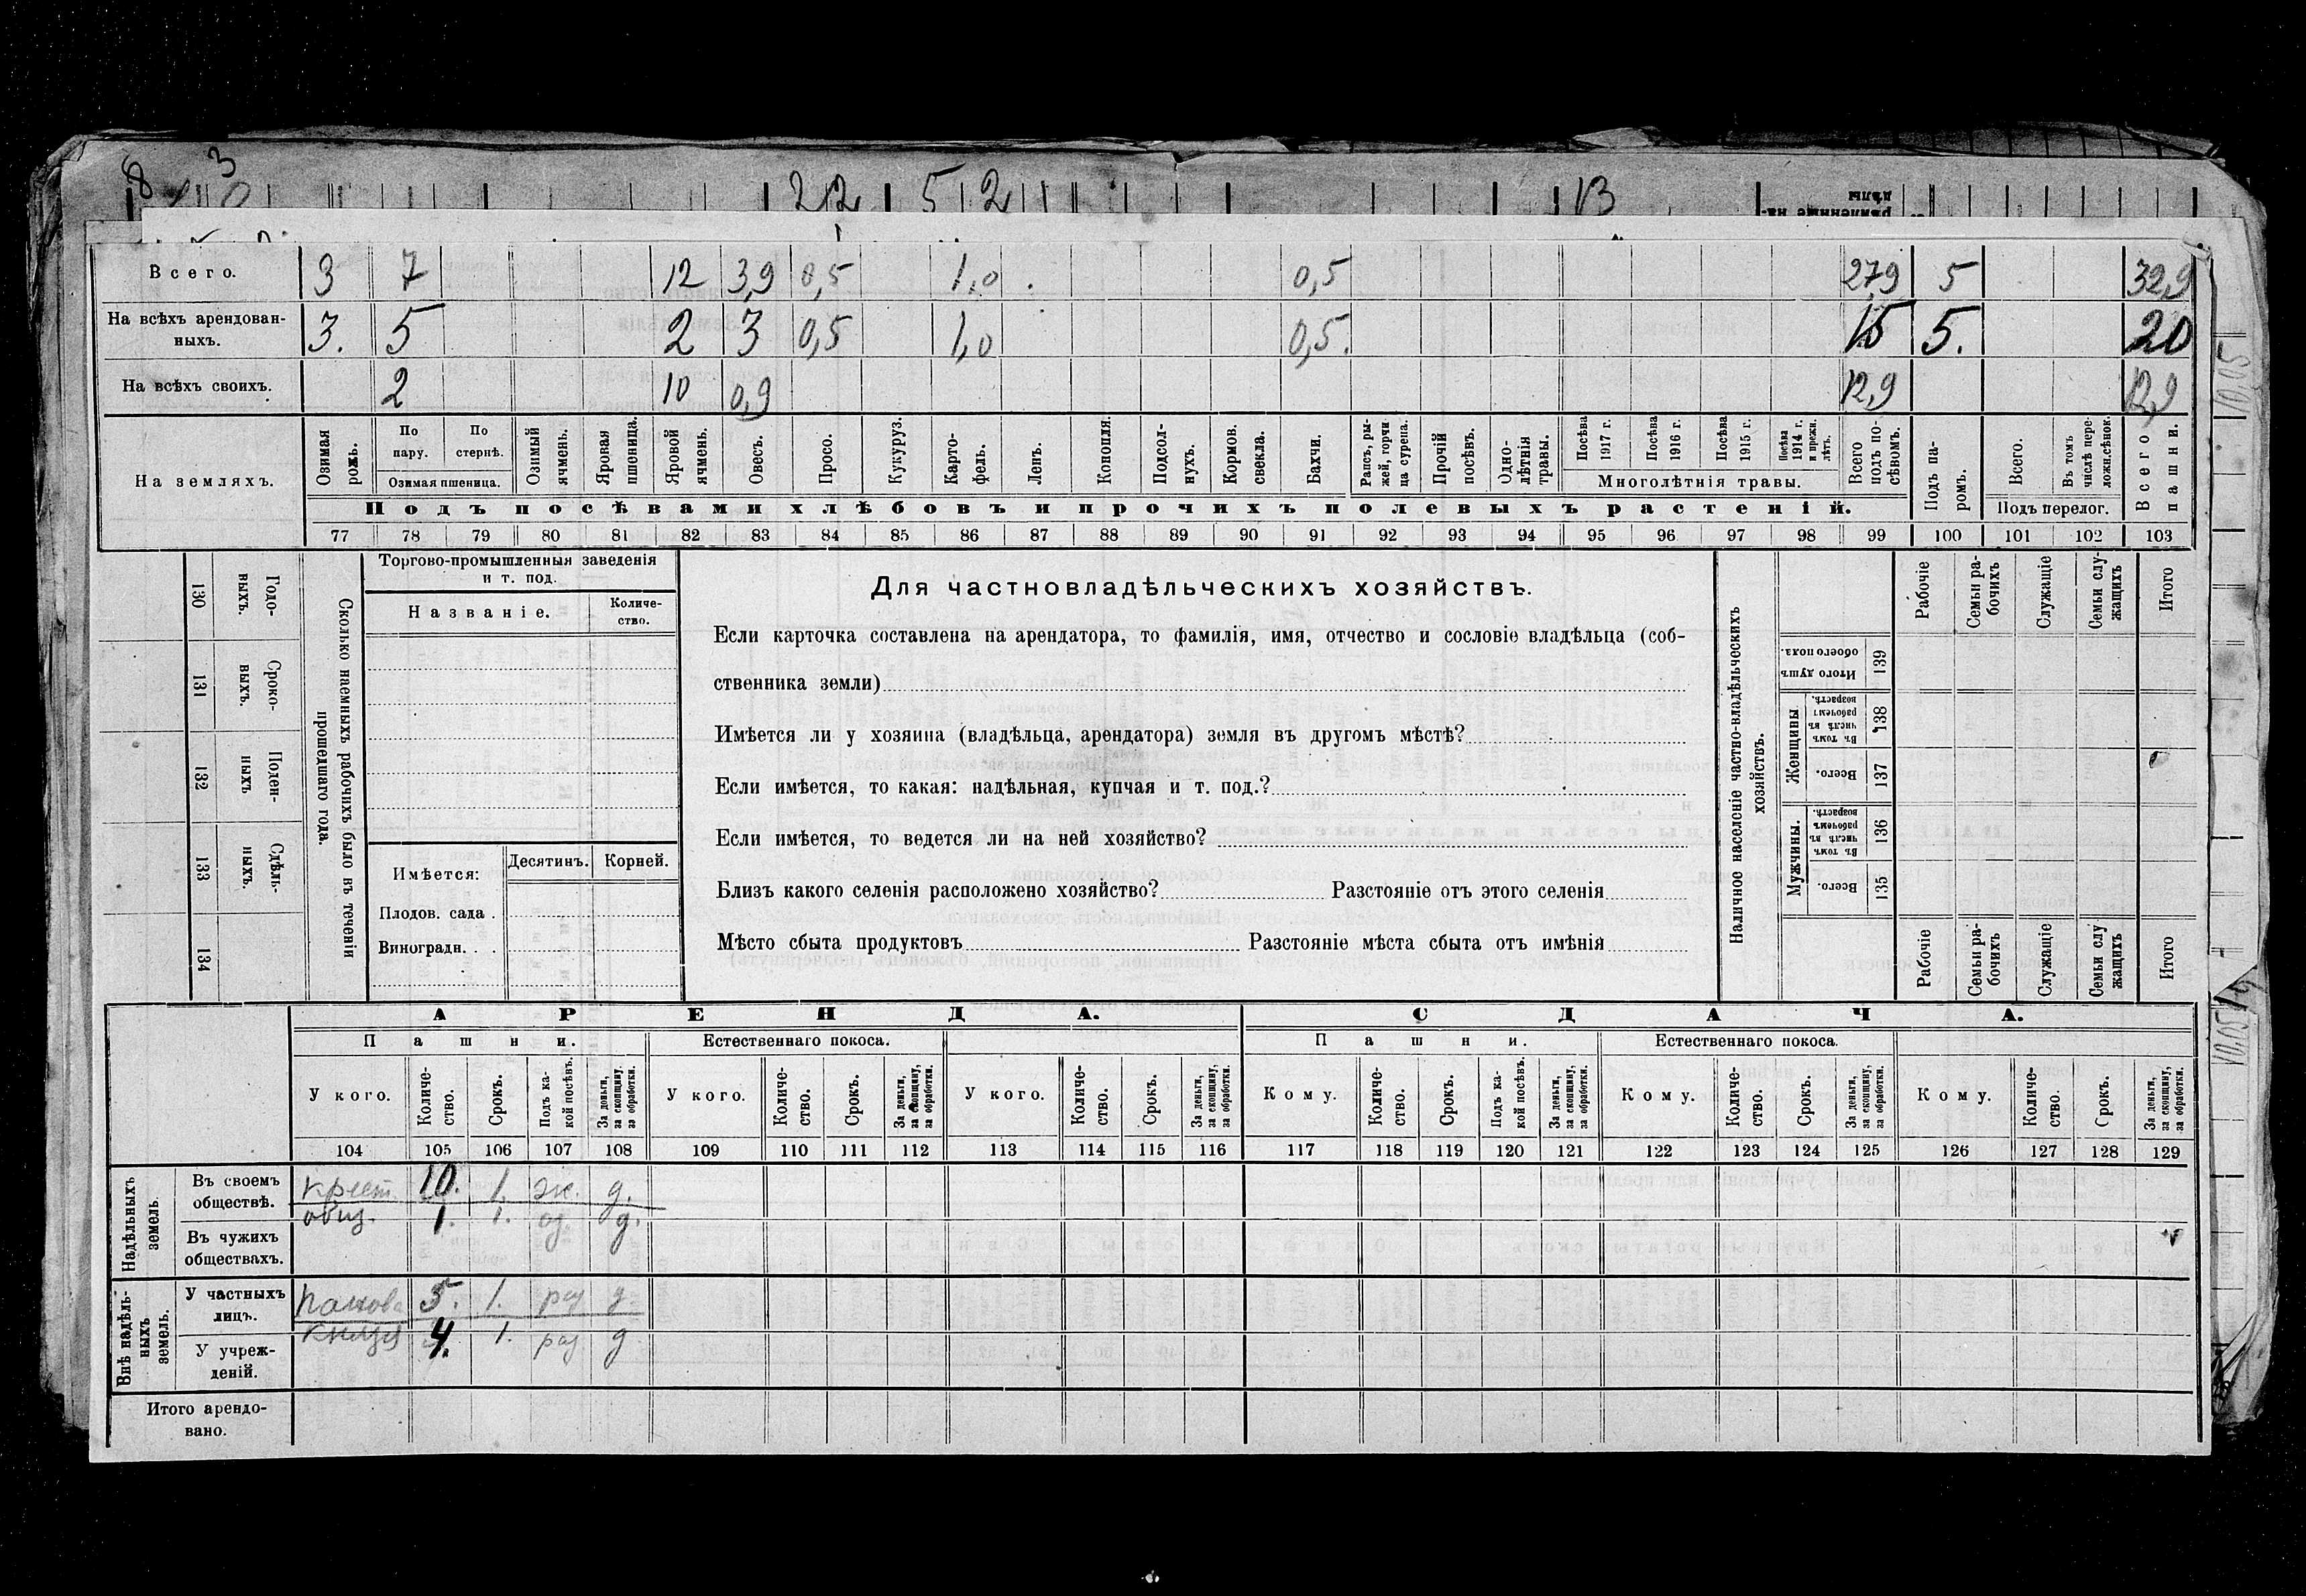 8 3
22 5 2 13
рѣменные на-
дѣлы
Всего. 3 7 12 3,9 0,5 1,0 0,5 27,9 5 32,9
На всѣхъ арендован-
ныхъ. 3. 5 2 3 0,5 1,0 0,5. 15 5. 20
На всѣхъ своихъ. 2 10 0,9 12,9 12,9
На земляхъ.
Озимая рожь.
По пару.
По стернѣ.
Озимая пшеница.
Озимый ячмень.
Яровая пшеница.
Яровой ячмень.
Овесъ.
Просо.
Кукуруз.
Карто-
фель.
Ленъ.
Конопля.
Подсол-
нухъ.
Кормов. свекла.
Бахчи.
Рапсъ, ры-
жей, горчи
ца сурепа.
Прочій посѣвъ.
Одно-
лѣтнія травы.
Посѣва 1917 г.
Посѣва 1916 г.
Посѣва 1915 г.
Посѣва 1914 г. и прежн. лѣтъ.
Многолѣтнія травы.
Всего подъ по-
сѣвомъ.
Подъ па-
ромъ.
Всего.
Въ томъ числѣ пере-
ложн.сѣнок.
Подъ перелог.
Всего пашни.
Подъ посѣвами хлѣбовъ и прочихъ полевыхъ растеній.
77 78 79 80 81 82 83 84 85 86 87 88 89 90 91 92 93 94 95 96 97 98 99 100 101 102 103
Годо-
выхъ. 130
Сроко-
выхъ. 131
Поден-
ныхъ 132
Сдѣль-
ныхъ. 133
134
Сколько наемныхъ рабочихъ было въ теченіи
прошедшаго года.
Торгово-промышленныя заведенія
и т. под.
Названіе. Количе-
ство.
Имѣется: Десятин. Корней.
Плодов. сада .
Виноградн. . .
Для частновладѣльческихъ хозяйствъ.
Если карточка составлена на арендатора, то фамилія, имя, отчество и сословіе владѣльца (соб-
ственника земли)
Имѣется ли у хозяина (владѣльца, арендатора) земля въ другомъ мѣстѣ?
Если имѣется, то какая: надѣльная, купчая и т. под.?
Если имѣется, то ведется ли на ней хозяйство?
Близъ какого селенія расположено хозяйство? Разстояніе отъ этого селенія
Мѣсто сбыта продуктовъ Разстояніе мѣста сбыта отъ имѣнія
Наличное населеніе частно-владѣльческихъ
хозяйствъ.
Рабочіе
Семьи ра-
бочихъ
Служащіе
Семьи слу-
жащихъ
Итого
Итого душъ обоего пола. 139
Женщины
Въ томъ числѣ въ рабочемъ возрастѣ. 138
Всего. 137
Мужчины.
Въ томъ числѣ въ рабочемъ возрастѣ. 136
Всего. 135
Рабочіе
Семьи ра-
бочихъ
Служащіе
Семьи слу
жащихъ
Итого
АРЕНДА. СДАЧА.
Пашни. Естественнаго покоса. Пашни. Естественнаго покоса.
У кого. Количе-
ство. Срокъ. Подъ ка-
кой посѣвъ. За деньги, за скопщину, за обработки.
У кого. Количе-
ство. Срокъ. За деньги, за скопщину, за обработки.
У кого. Количе-
ство. Срокъ. За деньги, за скопщину, за обработки.
Кому. Количе-
ство. Срокъ. Подъ ка-
кой посѣвъ. За деньги, за скопщину, за обработки.
Кому. Количе-
ство. Срокъ. За деньги, за скопщину, за обработки.
Кому. Количе-
ство. Срокъ. За деньги, за скопщину, за обработки.
104 105 106 107 108 109 110 111 112 113 114 115 116 117 118 119 120 121 122 123 124 125 126 127 128 129
Надѣльныхъ
земель
Въ своемъ
обществѣ. Крест. 10. 1. д.
общ. 1. 1. оз. д.
Въ чужихъ
обществахъ.
Внѣ надѣль-
ныхъ
земель.
У частныхъ
лицъ. 5. 1. раз д.
4. 1. раз д
У учреж-
деній.
Итого арендо-
вано.